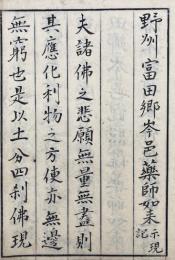 野州富田郷岺邑藥師如来示現記
夫諸佛之悲願無量無盡則
其應化利物之方便亦無邊
無窮也是以土分四利佛現